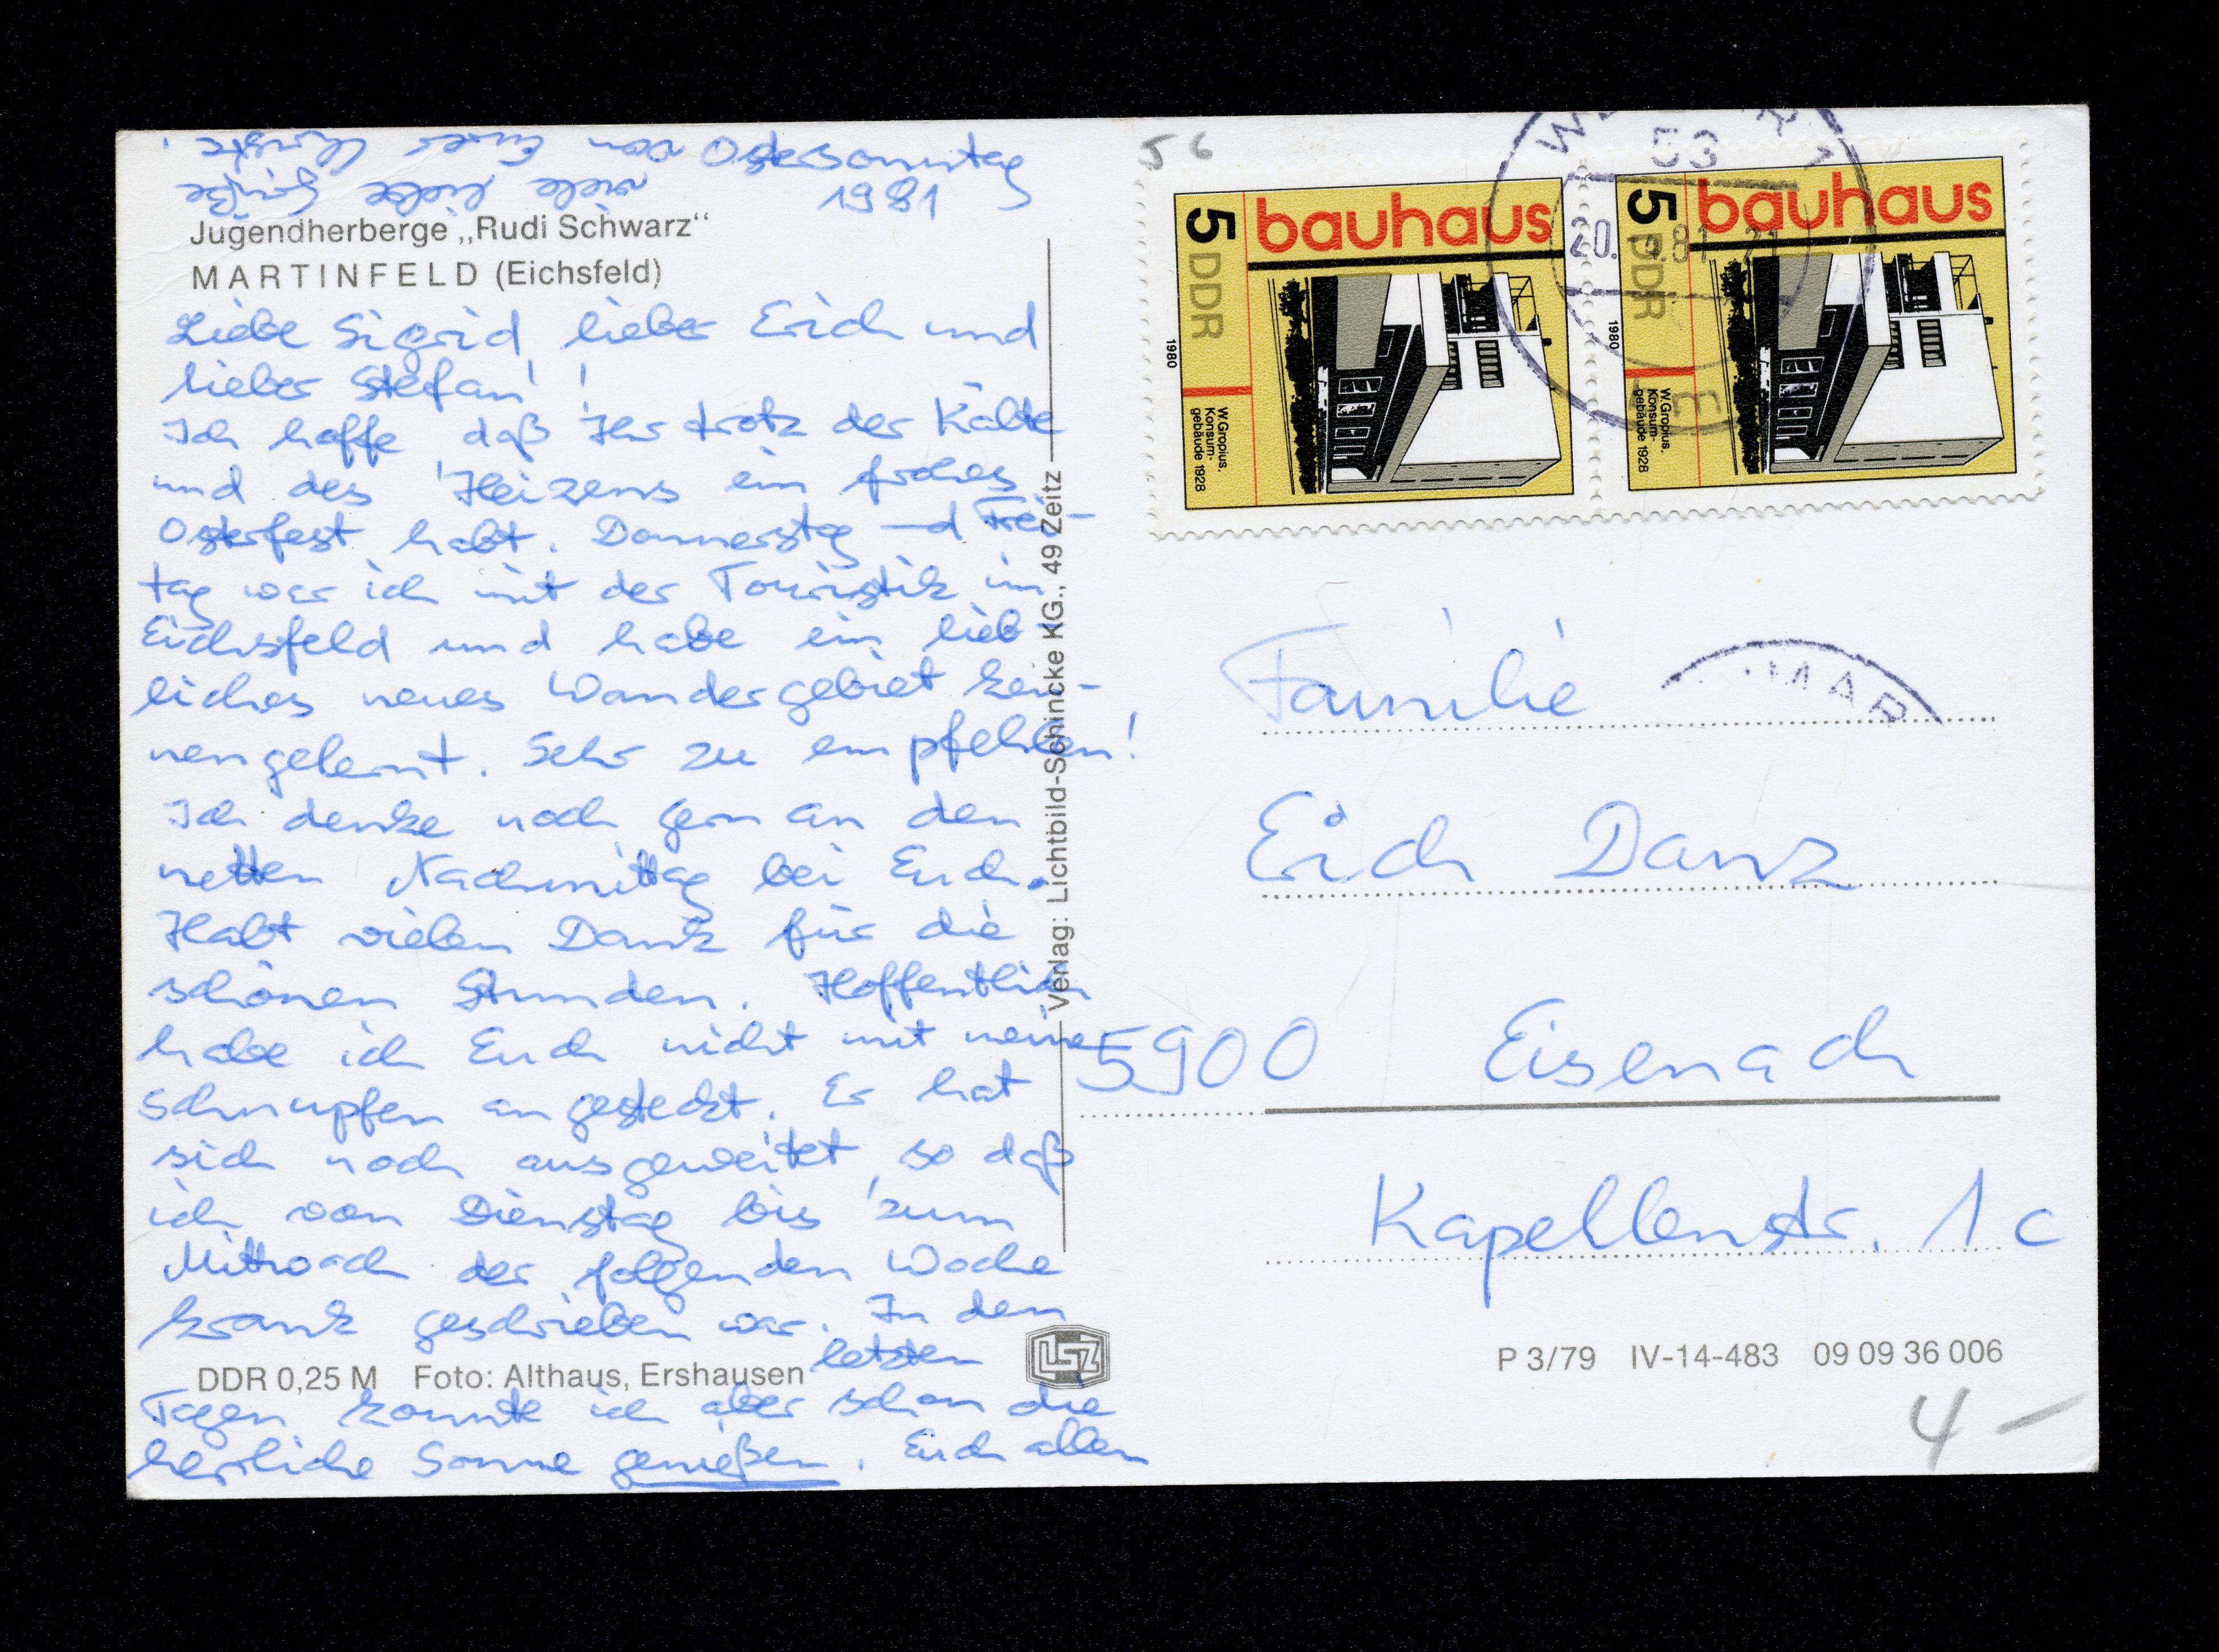 Ostersonntag
1981
Jugendherberge „Rudi Schwarz“
MARTINFELD (Eichsfeld)
Liebe Sigrid, lieber Erich und
lieber Stefan!
Ich hoffe, daß Ihr trotz der Kälte
und des Heizens ein frohes
Osterfest habt. Donnerstag und Frei-
tag war ich mit der Touristik im
Eichsfeld und habe ein lieb-
liches neues Wandergebiet ken-
nengelernt. Sehr zu empfehlen!
Ich denke noch gern an den
netten Nachmittag bei Euch.
Habt vielen Dank für die
schönen Stunden. Hoffentlich
habe ich Euch nicht mit meinem
Schnupfen angesteckt. Er hat
sich noch ausgeweitet, so daß
ich von Dienstag bis zum
Mittwoch der folgenden Woche
krank geschrieben war. In den
letzten
DDR 0,25 M Foto: Althaus, Ershausen
Tagen konnte ich aber schon die
herrliche Sonne genießen. Euch allen
viele liebe Grüße
von Eurer Christe.
Verlag: Lichtbild-Schincke KG., 49 Zeitz
LSZ
56
5 DDR
bauhaus
1980
W. Gropius,
Konsum-
gebäude 1928
5 DDR
bauhaus
1980
W. Gropius,
Konsum-
gebäude 1928
53
20. 4.81 21
MAR
Familie
Erich Danz
5900 Eisenach
Kapellenstr. 1c
P 3/79 IV-14-483 09 09 36 006
4 –